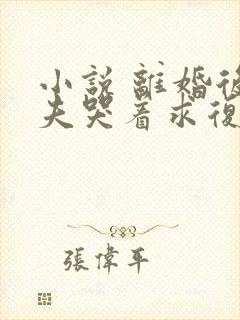 小說 離婚後
夫哭着求復
張偉平